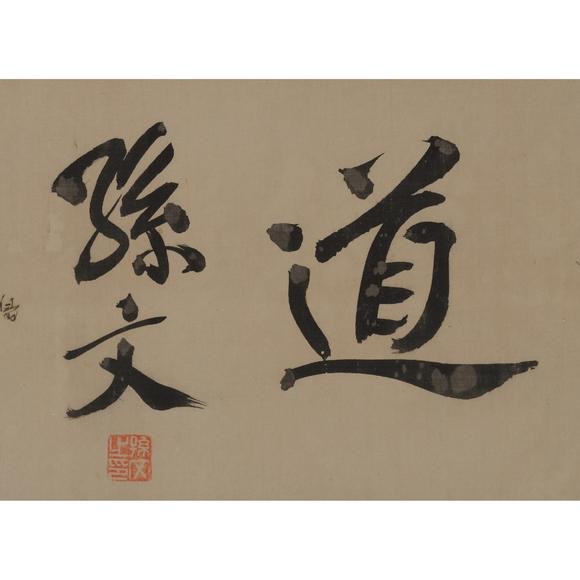 道
孫文
孫文之印